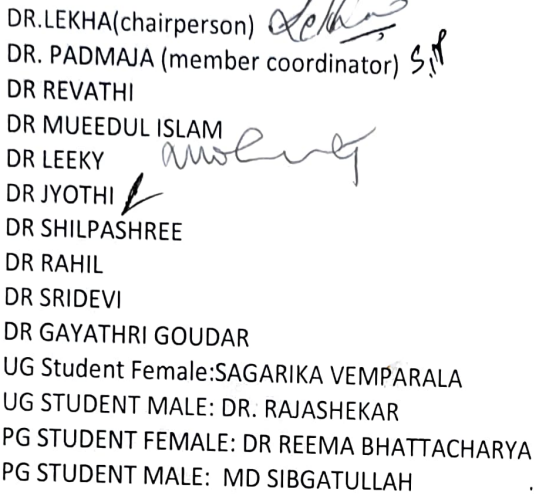 DR.LEKHA(chairperson) Lekha
DR. PADMAJA (member coordinator)
DR REVATHI
DR MUEEDUL ISLAM
DR LEEKY
DR JYOTHI
DR SHILPASHREE
DR RAHIL
DR SRIDEVI
DR GAYATHRI GOUDAR
UG Student Female:SAGARIKA VEMPARALA
UG STUDENT MALE: DR. RAJASHEKAR
PG STUDENT FEMALE: DR REEMA BHATTACHARYA
PG STUDENT MALE: MD SIBGATULLAH